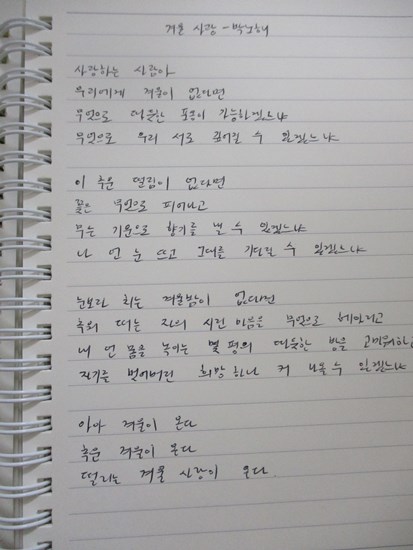 겨울 사랑 - 박노해
사랑하는 사람아
우리에게 겨울이 없다면
무엇으로 따뜻한 포옹이 가능하겠느냐
무엇으로 우리 서로 깊어질 수 있겠느냐
이 추운 떨림이 없다면
꽃은 무엇으로 피어나고
무슨 기운으로 향기를 낼 수 있겠느냐
나 언 눈 뜨고 그대를 기다릴 수 있겠느냐
눈보라 치는 겨울밤이 없다면
추워 떠는 자의 시린 마음을 무엇으로 헤아리고
내 언 몸을 녹이는 몇 평의 따뜻한 방을 고마워하고
자기를 벗어버린 희망 하나 커 나올 수 있겠느냐
아아 겨울이 온다
추운 겨울이 온다
떨리는 겨울 사랑이 온다